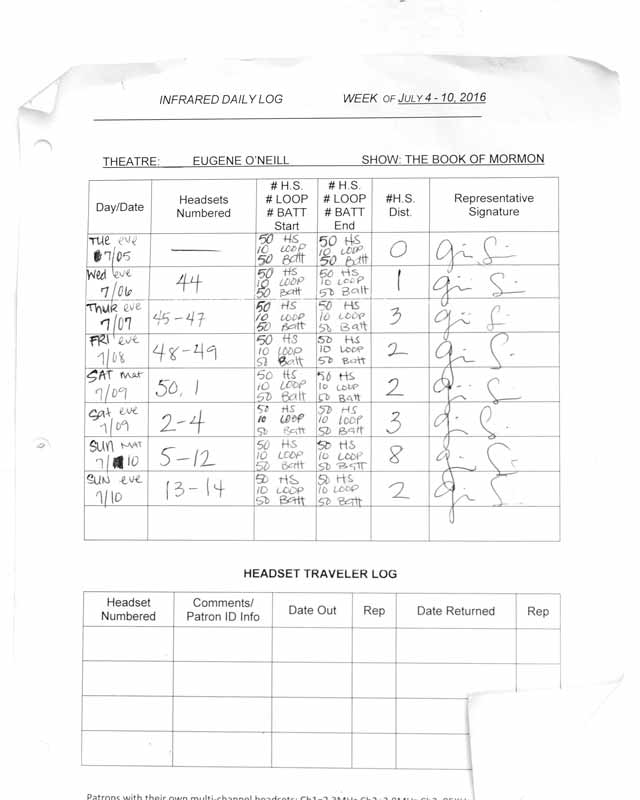 INFRARED DAILY LOG WEEK OF JULY 4 - 10, 2016
THEATRE: EUGENE O'NEILL SHOW: THE BOOK OF MORMON
Day/Date Headsets Numbered # H.S. # LOOP # BATT Start # H.S. # LOOP # BATT End #H.S. Dist. Representative Signature
TUE eve 7/05 — 50 HS 10 LOOP 50 Batt 50 HS 10 LOOP 50 Batt 0
Wed eve 7/06 44 50 HS 10 LOOP 50 Batt 50 HS 10 LOOP 50 Batt 1
Thur eve 7/07 45-47 50 HS 10 LOOP 50 Batt 50 HS 10 LOOP 50 Batt 3
FRI eve 7/08 48-49 50 HS 10 LOOP Batt 50 HS 10 LOOP 50 Batt 2
SAT mat 7/09 50, 1 50 HS 10 LOOP 50 Batt 50 HS 10 LOOP 50 Batt 2
Sat eve 7/09 2-4 50 HS 10 LOOP 50 Batt 50 HS 10 LOOP 50 Batt 3
SUN MAT 7/10 5-12 50 HS 10 LOOP 50 Batt 50 HS 10 LOOP 50 BATT 8
SUN eve 7/10 13-14 50 HS 10 LOOP 50 Batt 50 HS 10 LOOP 50 Batt 2
HEADSET TRAVELER LOG
Headset Numbered Comments/ Patron ID Info Date Out Rep Date Returned Rep
Patrons with their own multi-channel headsets: